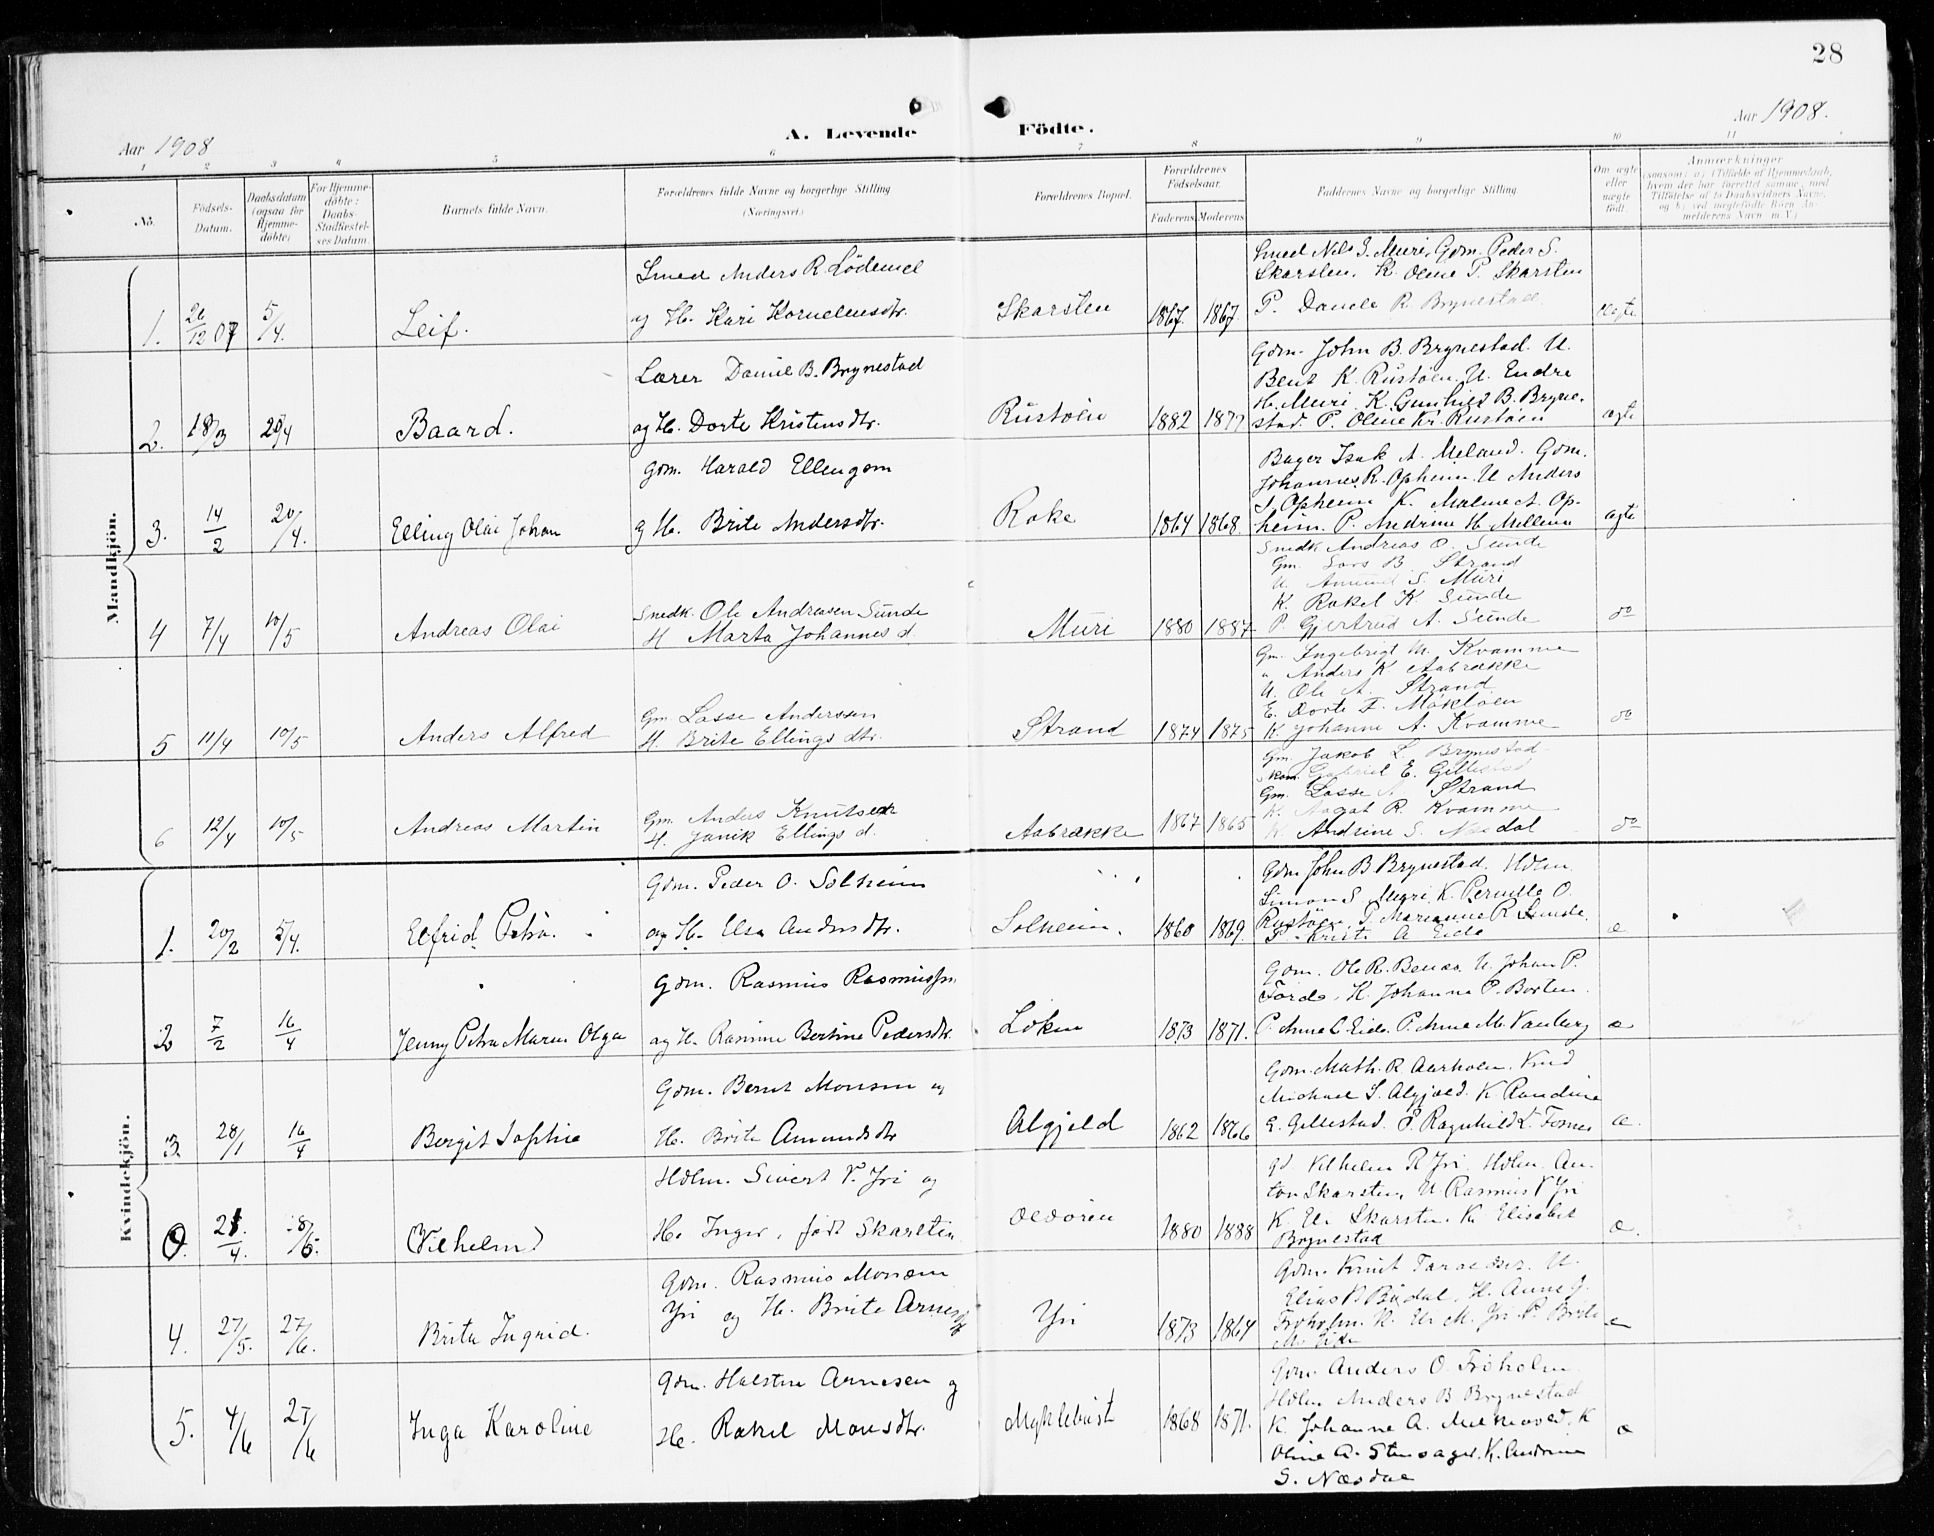 28
A. Levende Födte.
Aar 1908
Aar 1908.
1 2 3 4 5 6 7 8 9 10 11
No.
Födsels-Datum.
Daabsdatum (ogsaa for Hjemme-döbte)
For Hjemme-döbte: Daabs-Stadfæstel-ses Datum.
Barnets fulde Navn.
Forældrenes fulde Navne og borgerlige Stilling (Næringsvei)
Forældrenes Bopæl.
Forældrenes Födselsaar.
Faderens. Moderens.
Faddernes Navne og borgerlige Stilling.
Om ægte eller uægte födt.
Anmærkninger
Mandkjön.
Smed Anders R. Lödemel
Smed Nils S. Muri, Gdm. Peder S.
Skarsten. K. Oline P. Skarsten
1. 26/12 07 5/4. Leif. og H. Kari Kornelius dtr. Skarsten 1867. 1867. P. Danele R. Brynestad. ægte
Lærer Daniel B. Brynestad
Gdm. John B. Brynestad. U.
Bent K. Rustöen, U. Endre
H. Muri K. Gunhild B. Bryne-
2. 18/3 20/4 Baard. og H. Dorte Kristensdtr. Rustöen 1882 1877 stad. P. Oline Kr. Rustöen ægte
Gdm. Harald Ellengsen
Bager Isak A. Meland. Gdm.
Johannes R. Opheim. U Anders
J. Opheim K. Malene A. Op-
3. 14/2 20/4. Elling Olai Johan og H. Brite Andersdtr. Roke 1864 1868. heim. P. Andrine H. Mellem ægte
Snedk Andreas O. Sunde
Gm. Lars B. Strand
U. Amund S. Muri
Snedk. Ole Andreasen Sunde K. Rakel K Sunde
4 7/4 10/5 Andreas Olai H. Marta Johannes d. Muri 1880 1887 P. Gjertrud A. Sunde do
Gm. Ingebrigt M. Kvamme
" Anders K Aabrække
U. Ole A. Strand
Gm. Lasse Anderssen E. Dorte F. Mökleöen
5 11/4 10/5 Anders Alfred H. Brite Ellings dtr. Strand 1874 1875 K Johanne A. Kvamme do
Gm. Jakob L. Brynestad
Skom. Gabriel E. Gillestad
Gm. Lasse A Strand
Gm. Anders Knutsen K. Magat R. Kvamme
6 12/4 10/5 Andreas Martin H. Janik Ellings d. Aabrække 1867 1865 K. Andrine S. Næsdal do
Kvindekjön.
Gdm. Peder O. Solheim
Gdm John B Brynestad. Hdm.
Simon S. Muri, K. Pernille O.
Rustöen, P. Marianne R Sunde
1. 20/2 5/4. Elfrid Petra. og H. Elsa Andersdtr. Solheim. 1860 1869. P. Kristi A Eide æ
Gdm. Rasmus Rasmussen
Gdm. Ole R. Benes. U. Johan P.
Förde, K. Johanne P. Borten.
2 7/2 16/4 Jenny Petra Maren Olga og H. Rasmine Bertine Pedersdtr. Löken 1873 1871. P. Anne C. Eide. P. Anne M. Vanberg æ
Gdm. Bernt Monsen og
Gdm. Math. R. Aarholen. Knud
Michael S. Algjeld. K. Randine
3. 28/1 16/4 Bergit Sophie H. Brite Amundsdtr Algjeld 1862 1866 E. Gillestad. P. Ragnhild L. Fornes æ.
Hdlm. Sivert V. Yri og
Gd. Vilhelm R Yri, Hdlm. An-
ton Skarsten, U Rasmus V Yri
0. 21./4. 28/5. (Vilhelm) H. Inger, födt Skarsten Oldören 1880 1888 K. Eli Skarsten. K. Elisabet
Brynestad æ.
Gdm. Rasmus Monsen
Gdm. Knut Taraldset. U.
Elias P. Bödal, H. Anne J.
Yri og H. Brite Arnesdtr
4. 27/5. 27/6. Brita Ingrid. Yri 1873 1864 Fröholm. K. Eli M. Yri. P. Brite
M. Eide æ
Gdm. Halsten Arnesen og
Gdm. Anders O. Fröholm
Hdlm Anders B Brynestad
5. 4/6 27/6 Inga Karoline H. Rakel Monsdtr. Myklebust 1868 1871. K. Johanne A. Melheim. K
Oline A. Stensager. K. Andrine
S. Næsdal æ